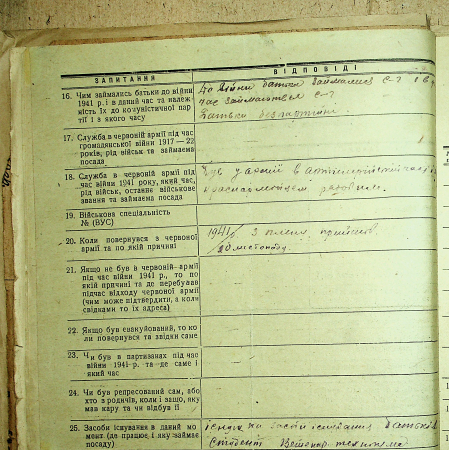 ЗАПИТАННЯ
ВІДПОВІДІ
16. Чим займались батьки до війни
1941 р. і в даний час та належ-
ність їх до комуністичної пар-
тії і з якого часу
До війни батьки займалися с-г і в
час займаються с-г
Батьки безпартійні
17. Служба в червоній армії під час
громадянської війни 1917—22
років, рід військ та займаема
посада
18. Служба в червоній армії під
час війни 1941 року, який час,
рід військ, останнє військове
звання та займаема посада
Був у армії в артилерійській часті
красноармейцем рядовим.
19. Військова спеціальність
№ (ВУС)
20. Коли повернувся з червоної
армії та по якій причині
1941 з плена прийшов
20 листопада
21. Якщо не був в червоній армії
під час війни 1941 р., то по
якій причині та де перебував
підчас відходу червоної армії
(чим може підтвердити, а коли
свідками то їх адреса)
22. Якщо був евакуйований, то ко-
ли повернувся та звідки саме
23. Чи був в партизанах під час
війни 1941 р. та де саме і
який час
24. Чи був репресований сам, або
хто з родичів, коли і защо, яку
мав кару та чи відбув її
25. Засоби існування в даний мо-
мент (де працює і яку займає
посаду)
існування батьків
студент технікума